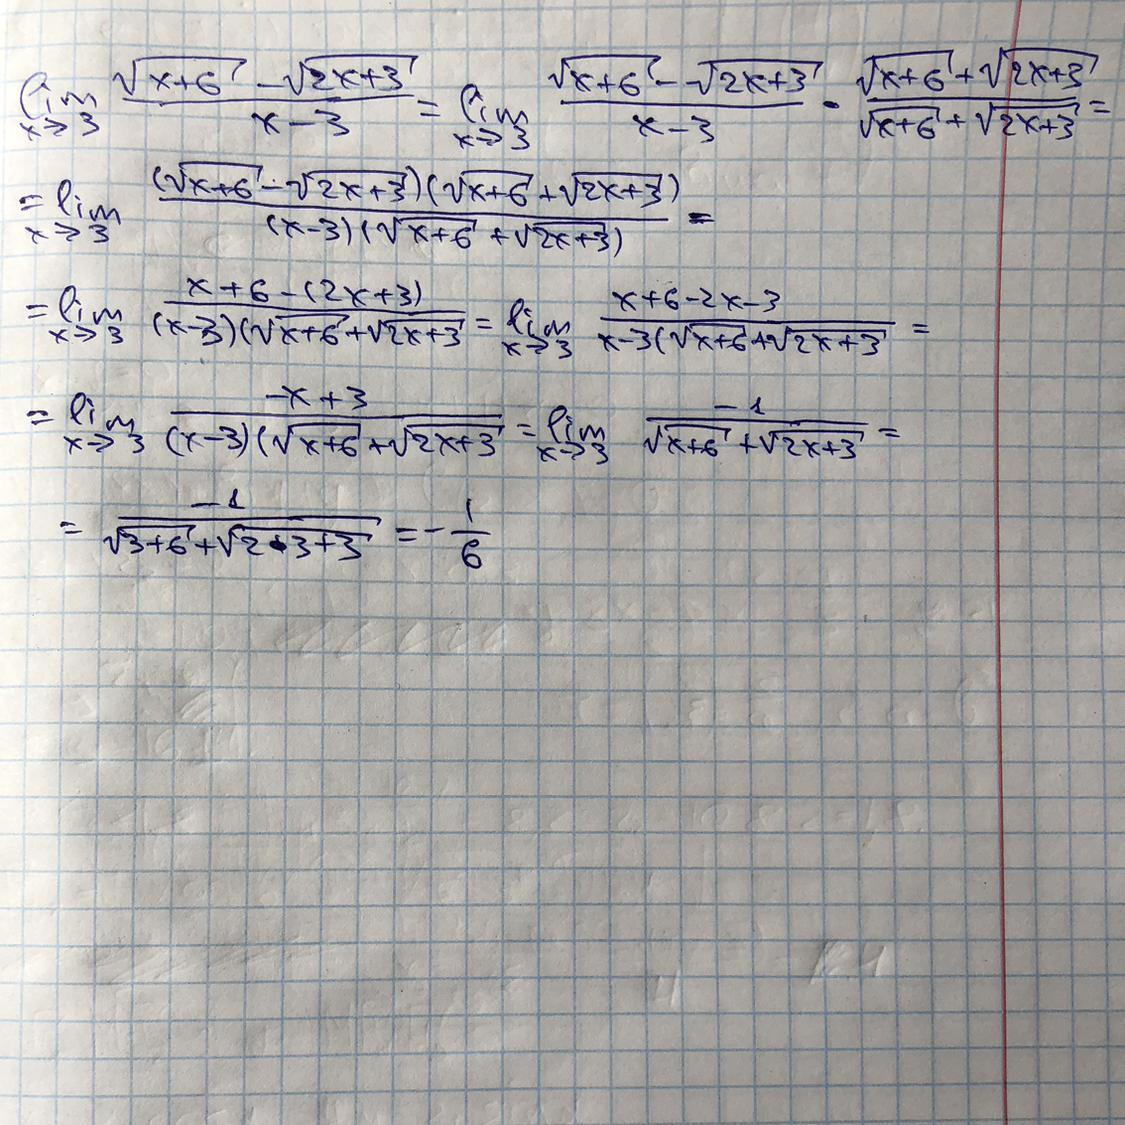 lim x→3 (√(x+6) - √(2x+3))/(x-3) = lim x→3 (√(x+6) - √(2x+3))/(x-3) · (√(x+6) + √(2x+3))/(√(x+6) + √(2x+3)) =
= lim x→3 ((√(x+6) - √(2x+3))(√(x+6) + √(2x+3)))/((x-3)(√(x+6) + √(2x+3))) =
= lim x→3 (x+6-(2x+3))/((x-3)(√(x+6) + √(2x+3)) = lim x→3 (x+6-2x-3)/(x-3(√(x+6) + √(2x+3)) =
= lim x→3 (-x+3)/((x-3)(√(x+6) + √(2x+3)) = lim x→3 (-1)/(√(x+6) + √(2x+3)) =
= (-1)/(√(3+6) + √(2·3+3)) = -1/6